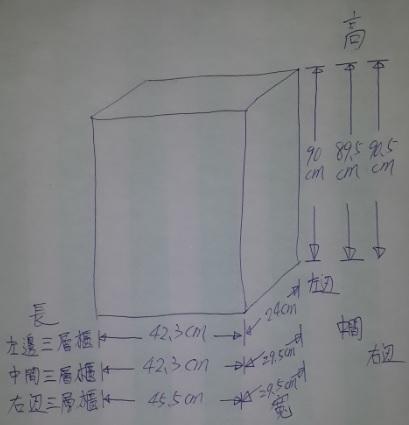 高
90 cm
89.5 cm
90.5 cm
左边
中間
右边
長
左邊三層櫃 42.3cm 24cm
中間三層櫃 42.3cm 29.5cm
右边三層櫃 45.5cm 29.5cm
寬